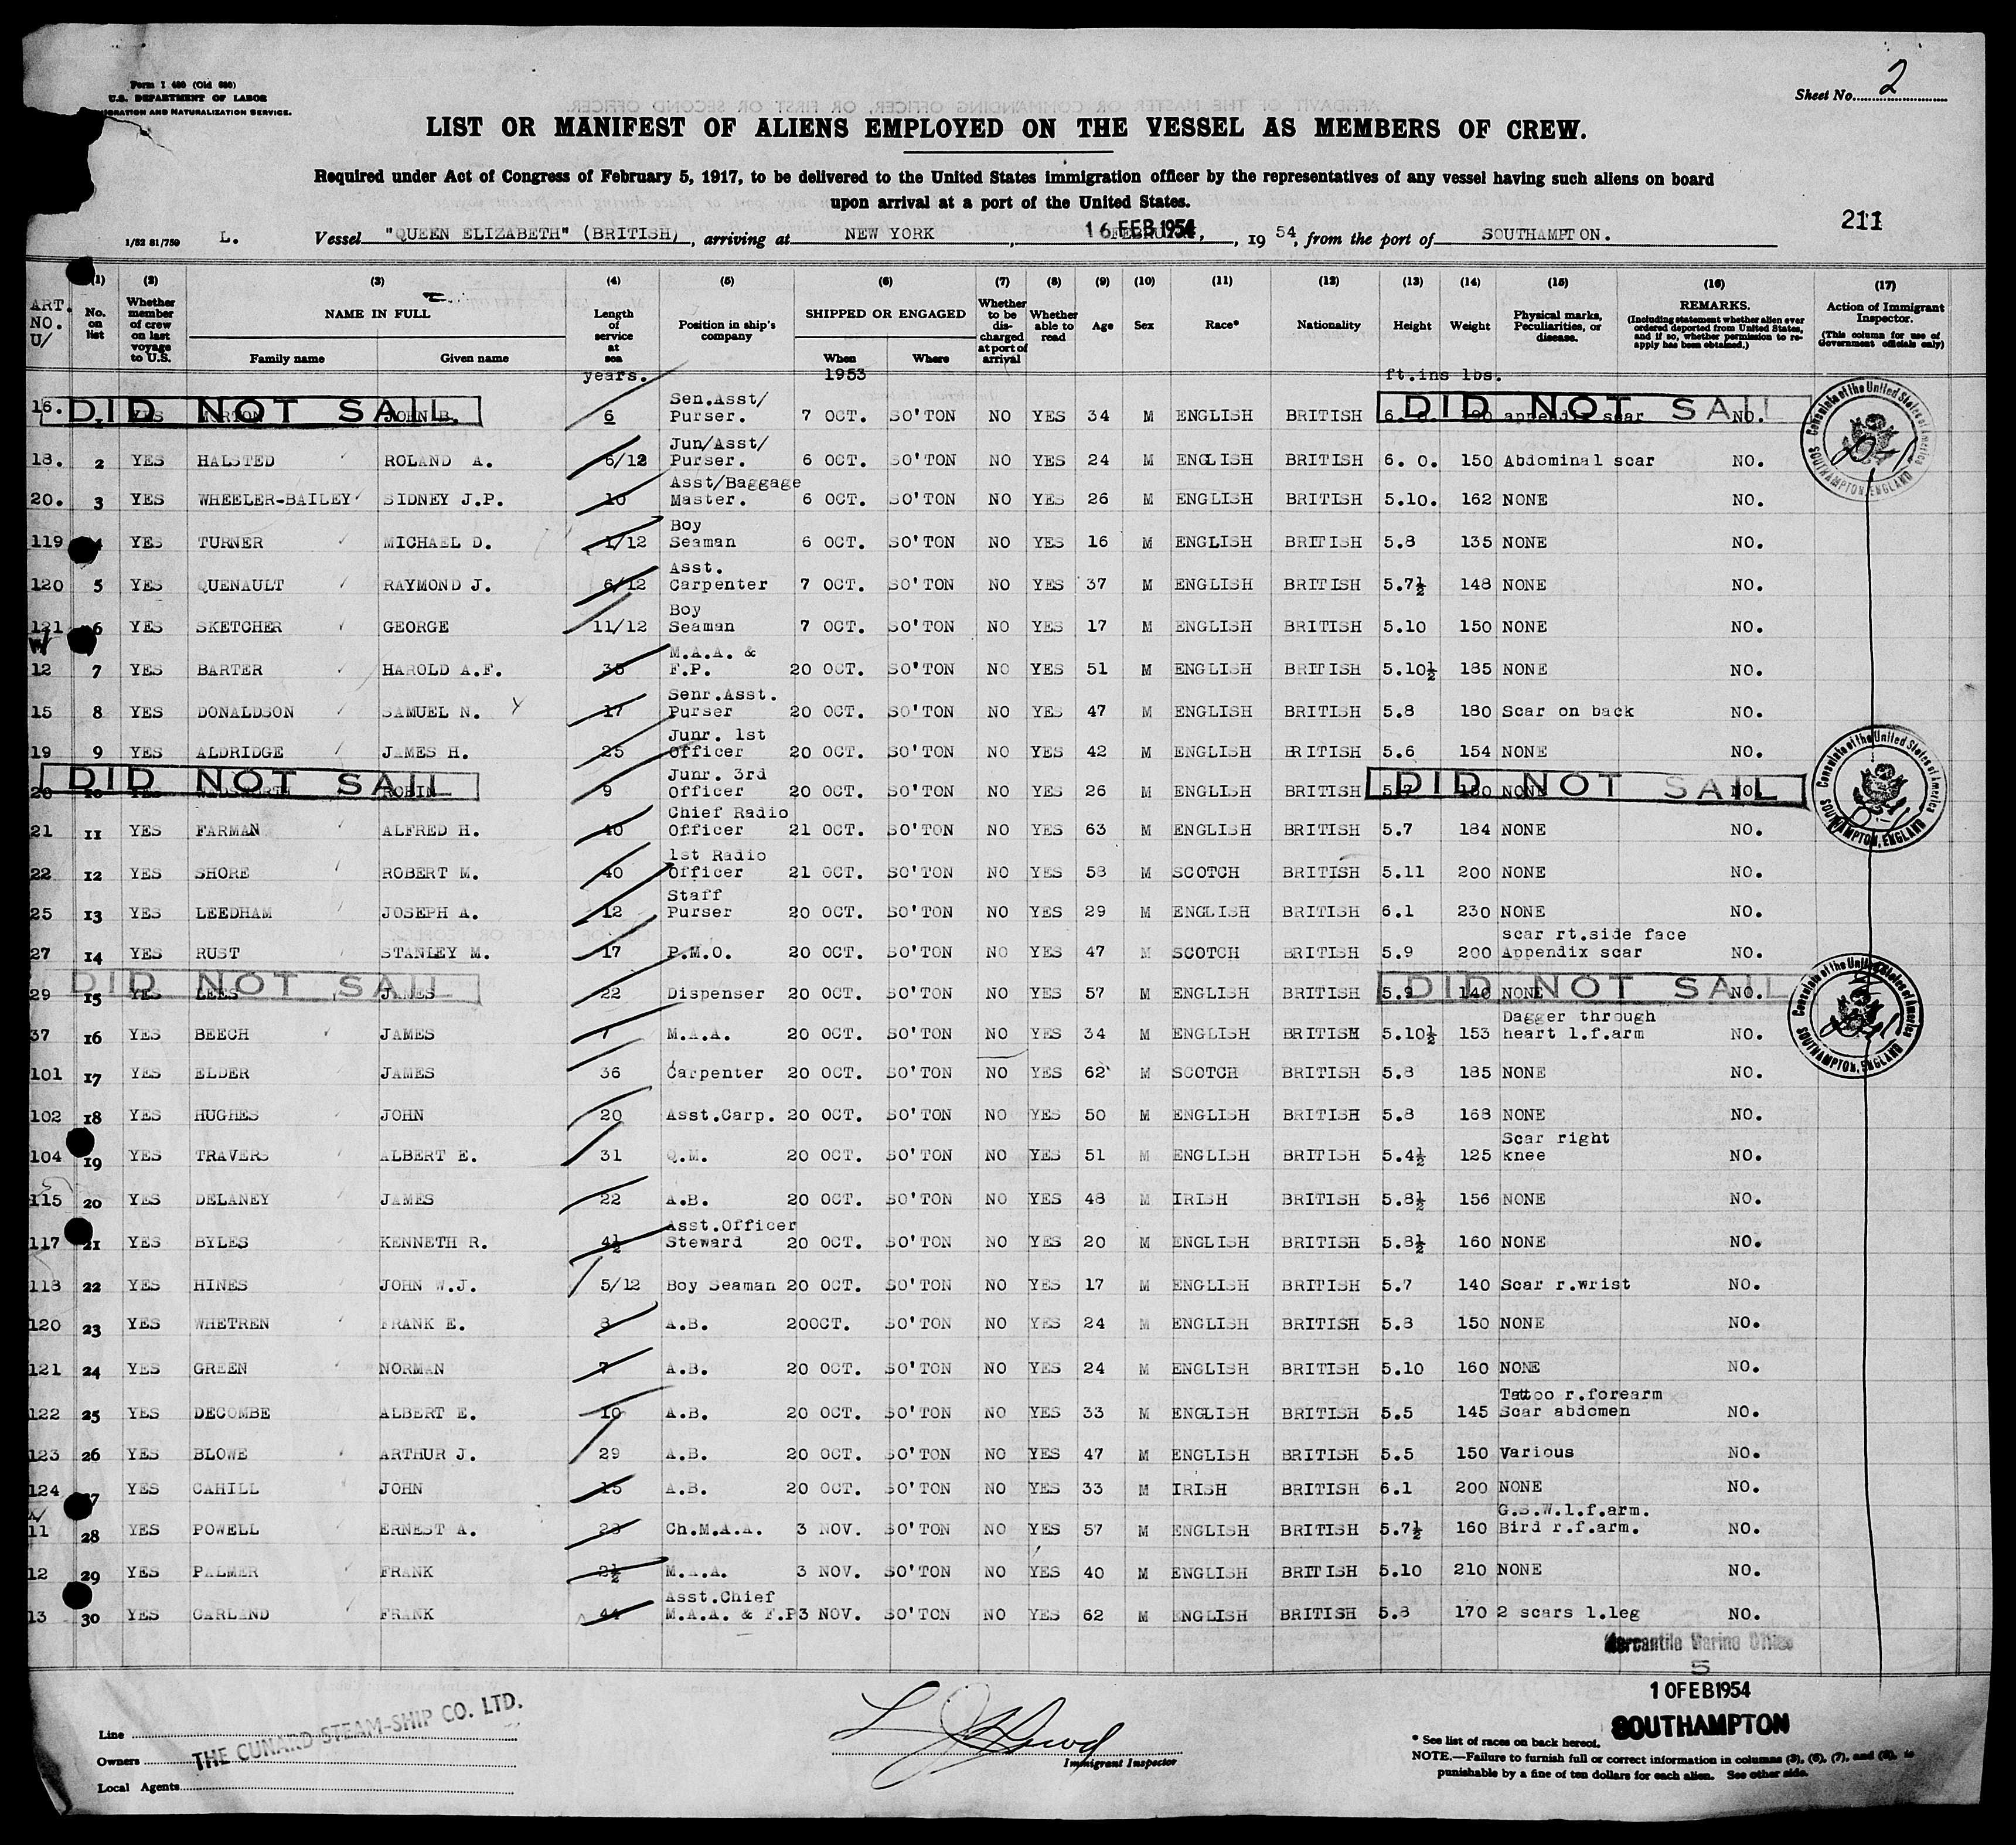 Form I 480 (Old 680)
U.S. DEPARTMENT OF LABOR
IMMIGRATION AND NATURALIZATION SERVICE.
Sheet No. 2
LIST OR MANIFEST OF ALIENS EMPLOYED ON THE VESSEL AS MEMBERS OF CREW.
Required under Act of Congress of February 5, 1917, to be delivered to the United States immigration officer by the representatives of any vessel having such aliens on board
upon arrival at a port of the United States.
211
1/52 81/750 L. Vessel "QUEEN ELIZABETH" (BRITISH), arriving at NEW YORK, 16 FEB 1954, 19 54, from the port of SOUTHAMPTON.
ART. NO. U/
(1) No. on list
(2) Whether member of crew on last voyage to U.S.
(3) NAME IN FULL Family name Given name
(4) Length of service at sea years.
(5) Position in ship's company
(6) SHIPPED OR ENGAGED When 1953 Where
(7) Whether to be discharged at port of arrival
(8) Whether able to read
(9) Age
(10) Sex
(11) Race*
(12) Nationality
(13) Height ft.ins
(14) Weight lbs.
(15) Physical marks, Peculiarities, or disease.
(16) REMARKS. (Including statement whether alien ever ordered deported from United States, and if so, whether permission to reapply has been obtained.)
(17) Action of Immigrant Inspector. (This column for use of Government officials only)
16. 1 YES JOHN B. 6 Sen.Asst/ Purser. 7 OCT. SO'TON NO YES 34 M ENGLISH BRITISH appendix scar NO.
DID NOT SAIL DID NOT SAIL
18. 2 YES HALSTED ROLAND A. 6/12 Jun/Asst/ Purser. 6 OCT. SO'TON NO YES 24 M ENGLISH BRITISH 6. 0. 150 Abdominal scar NO.
20. 3 YES WHEELER-BAILEY SIDNEY J.P. 10 Asst/Baggage Master. 6 OCT. SO'TON NO YES 26 M ENGLISH BRITISH 5.10. 162 NONE NO.
119 4 YES TURNER MICHAEL D. 1/12 Boy Seaman 6 OCT. SO'TON NO YES 16 M ENGLISH BRITISH 5.8 135 NONE NO.
120 5 YES QUENAULT RAYMOND J. 6/12 Asst. Carpenter 7 OCT. SO'TON NO YES 37 M ENGLISH BRITISH 5.7½ 148 NONE NO.
121 6 YES SKETCHER GEORGE 11/12 Boy Seaman 7 OCT. SO'TON NO YES 17 M ENGLISH BRITISH 5.10 150 NONE NO.
W/
12 7 YES BARTER HAROLD A.F. M.A.A. & F.P. 20 OCT. SO'TON NO YES 51 M ENGLISH BRITISH 5.10½ 185 NONE NO.
15 8 YES DONALDSON SAMUEL N. 17 Senr.Asst. Purser 20 OCT. SO'TON NO YES 47 M ENGLISH BRITISH 5.8 180 Scar on back NO.
19 9 YES ALDRIDGE JAMES H. 25 Junr. 1st Officer 20 OCT. SO'TON NO YES 42 M ENGLISH BRITISH 5.6 154 NONE NO.
20 10 YES WADSWORTH ROBIN 9 Junr. 3rd Officer 20 OCT. SO'TON NO YES 26 M ENGLISH BRITISH NONE NO.
DID NOT SAIL DID NOT SAIL
21 11 YES FARMAN ALFRED H. 40 Chief Radio Officer 21 OCT. SO'TON NO YES 63 M ENGLISH BRITISH 5.7 184 NONE NO.
22 12 YES SHORE ROBERT M. 40 1st Radio Officer 21 OCT. SO'TON NO YES 58 M SCOTCH BRITISH 5.11 200 NONE NO.
25 13 YES LEEDHAM JOSEPH A. 12 Staff Purser 20 OCT. SO'TON NO YES 29 M ENGLISH BRITISH 6.1 230 NONE NO.
27 14 YES RUST STANLEY M. 17 P.M.O. 20 OCT. SO'TON NO YES 47 M SCOTCH BRITISH 5.9 200 scar rt.side face Appendix scar NO.
29 15 YES LEES JAMES 22 Dispenser 20 OCT. SO'TON NO YES 57 M ENGLISH BRITISH 5.9 140 NONE NO.
DID NOT SAIL DID NOT SAIL
37 16 YES BEECH JAMES 7 M.A.A. 20 OCT. SO'TON NO YES 34 M ENGLISH BRITISH 5.10½ 153 Dagger through heart l.f.arm NO.
101 17 YES ELDER JAMES 36 Carpenter 20 OCT. SO'TON NO YES 62 M SCOTCH BRITISH 5.8 185 NONE NO.
102 18 YES HUGHES JOHN 20 Asst.Carp. 20 OCT. SO'TON NO YES 50 M ENGLISH BRITISH 5.8 168 NONE NO.
104 19 YES TRAVERS ALBERT E. 31 Q.M. 20 OCT. SO'TON NO YES 51 M ENGLISH BRITISH 5.4½ 125 Scar right knee NO.
115 20 YES DELANEY JAMES 22 A.B. 20 OCT. SO'TON NO YES 48 M IRISH BRITISH 5.8½ 156 NONE NO.
117 21 YES BYLES KENNETH R. 4½ Asst.Officer Steward 20 OCT. SO'TON NO YES 20 M ENGLISH BRITISH 5.8½ 160 NONE NO.
118 22 YES HINES JOHN W.J. 5/12 Boy Seaman 20 OCT. SO'TON NO YES 17 M ENGLISH BRITISH 5.7 140 Scar r.wrist NO.
120 23 YES WHETREN FRANK E. 8 A.B. 20OCT. SO'TON NO YES 24 M ENGLISH BRITISH 5.8 150 NONE NO.
121 24 YES GREEN NORMAN 7 A.B. 20 OCT. SO'TON NO YES 24 M ENGLISH BRITISH 5.10 160 NONE NO.
122 25 YES DECOMBE ALBERT E. 10 A.B. 20 OCT. SO'TON NO YES 33 M ENGLISH BRITISH 5.5 145 Tattoo r.forearm Scar abdomen NO.
123 26 YES BLOWE ARTHUR J. 29 A.B. 20 OCT. SO'TON NO YES 47 M ENGLISH BRITISH 5.5 150 Various NO.
124 27 YES CAHILL JOHN 15 A.B. 20 OCT. SO'TON NO YES 33 M IRISH BRITISH 6.1 200 NONE NO.
X/
11 28 YES POWELL ERNEST A. 23 Ch.M.A.A. 3 NOV. SO'TON NO YES 57 M ENGLISH BRITISH 5.7½ 160 G.S.W.l.f.arm. Bird r.f.arm. NO.
12 29 YES PALMER FRANK 2½ M.A.A. 3 NOV. SO'TON NO YES 40 M ENGLISH BRITISH 5.10 210 NONE NO.
13 30 YES GARLAND FRANK 44 Asst.Chief M.A.A. & F.P 3 NOV. SO'TON NO YES 62 M ENGLISH BRITISH 5.8 170 2 scars l.leg NO.
Consulate of the United States of America SOUTHAMPTON, ENGLAND
Consulate of the United States of America SOUTHAMPTON, ENGLAND
Consulate of the United States of America SOUTHAMPTON, ENGLAND
Mercantile Marine Office
5
10 FEB 1954
SOUTHAMPTON
Line
Owners THE CUNARD STEAM-SHIP CO. LTD.
Local Agents
Immigrant Inspector
* See list of races on back hereof.
NOTE.—Failure to furnish full or correct information in columns (3), (6), (7), and (8), is
punishable by a fine of ten dollars for each alien. See other side.